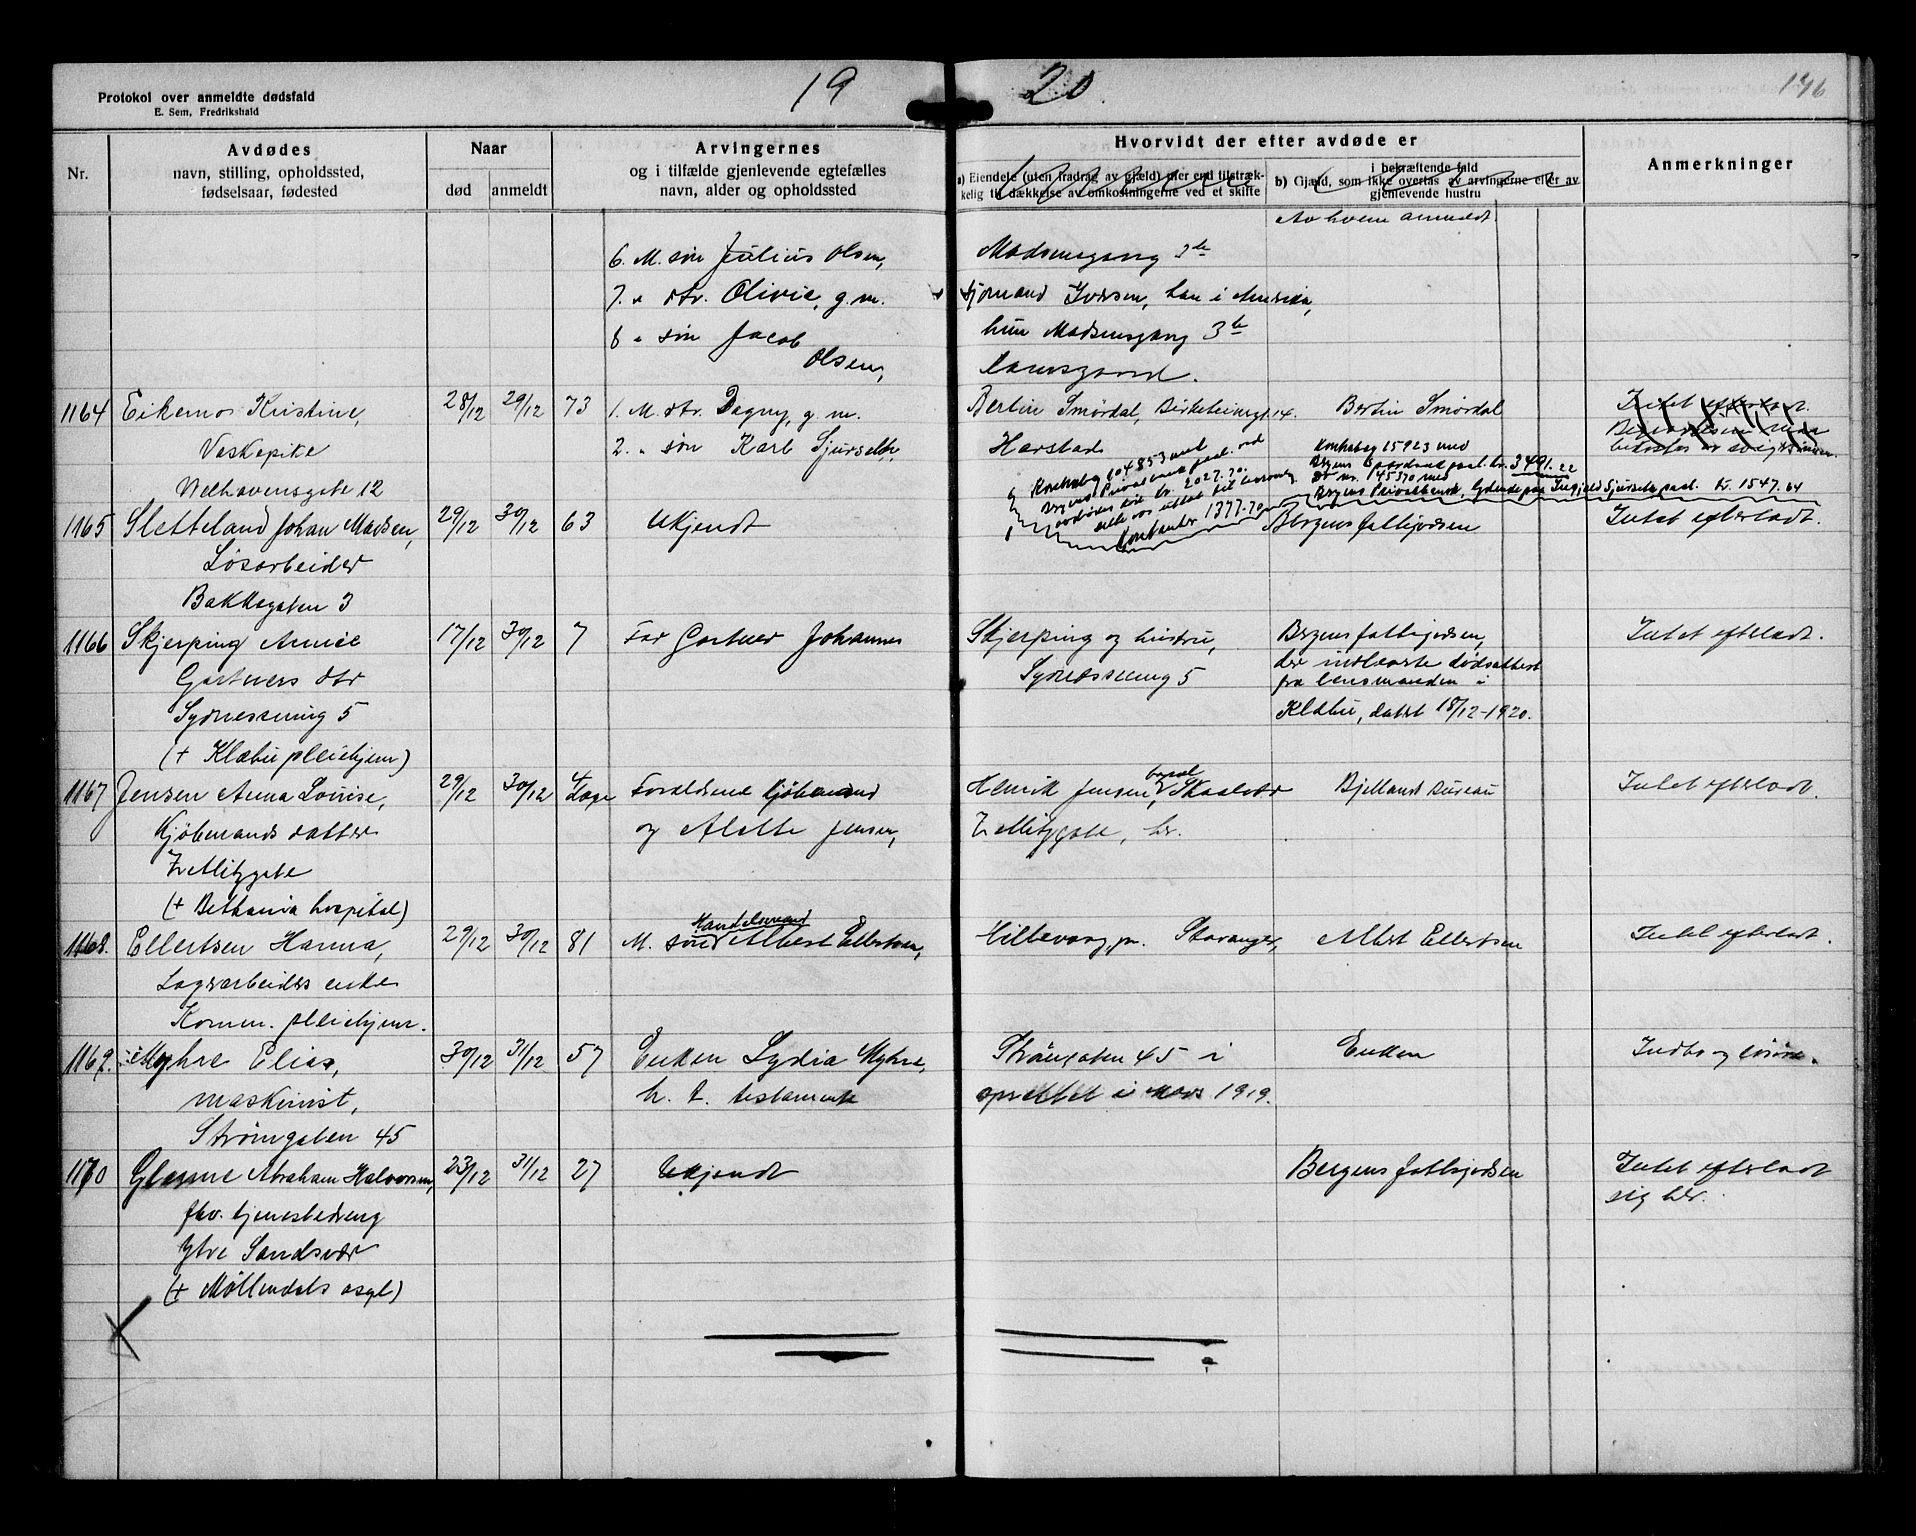 19 20.
146
Protokol over anmeldte dødsfald
E. Sem, Fredrikshald
Nr.
Avdødes
navn, stilling, opholdssted,
fødselsaar, fødested
Naar
død anmeldt
Arvingernes
og i tilfælde gjenlevende egtefælles
navn, alder og opholdssted
Hvorvidt der efter avdøde er
a) Eiendele (uten fradrag av gjæld) mer end tilstræk-
kelig til dækkelse av omkostningerne ved et skifte
i bekræftende fald
b) Gjæld, som ikke overtas av arvingerne eller av
gjenlevende hustru
Anmerkninger
Av hvem anmeldt.
6. M. søn Julius Olsen, Madsensgang 3te
7. " dtr. Olivie, g. m. sjømand Iversen, han i Amerika,
8 " søn Jacob hun Madsensgang 3te
Olsen,
1164 Eikemo Kristine, 28/12 29/12 73 1. M. dtr. Dagny, g. m. Bertin Smørdal, Birkebeinerg. 14. Bertin Smørdal Intet efterladt.
Vaskepike 2. " søn Karl Sjurseth, Harstad
Welhavensgate 12
Kontrabog 104853 med
Bergens Privatbank paal.
kr. 2027.70.
1377.70
Kontrabog 15923 med
Bergens Sparebank paal. kr. 3491.22
Do nr. 145370 med
Bergens Privatbank, paal. kr. 1547.64
1165 Sletteland Johan Madsen, 29/12 30/12 63 Ukjendt Bergens fattigvæsen Intet efterladt.
Løsarbeider
Bakkegaten 3
1166 Skjerping Annie 17/12 30/12 7 Far Gartner Johannes Skjerping og hustru, Bergens fattigvæsen, Intet efterladt.
Gartners dtr Sydnessmug 5 der indleverte dødsattest
Sydnessmug 5 fra lensmanden i
(+ Klæbu pleiehjem) Klæbu, datert 18/12-1920.
1167 Jensen Anna Louise, 29/12 30/12 4 Dage Forældrene kjøbmand Henrik Jensen, Bjellands Bureau Intet efterladt.
Kjøbmands datter og Alette Jensen, Zetlitzgate, her.
Zetlitzgate
(+ Bethania hospital)
1168. Ellertsen Hanna, 29/12 30/12 81 M. søn Handelsmand Albert Ellertsen, Hillevaag pr. Stavanger, Albert Ellertsen Intet efterladt.
Lagerarbeiders enke
Komm. pleiehjem.
1169. Myhre Elias, 30/12 31/12 57 Enken Lydia Myhre, Strømgaten 45 i Enken Indbo og løsøre.
maskinist, h. t. testamente oprettet i mars 1919.
Strømgaten 45
1170 Abraham Halvorsen, 23/12 31/12 27 Ukjendt Bergens fattigvæsen Intet efterladt
fhv. tjenestedreng sig her.
Ytre Sandsvær
(+ Møllendals asyl)